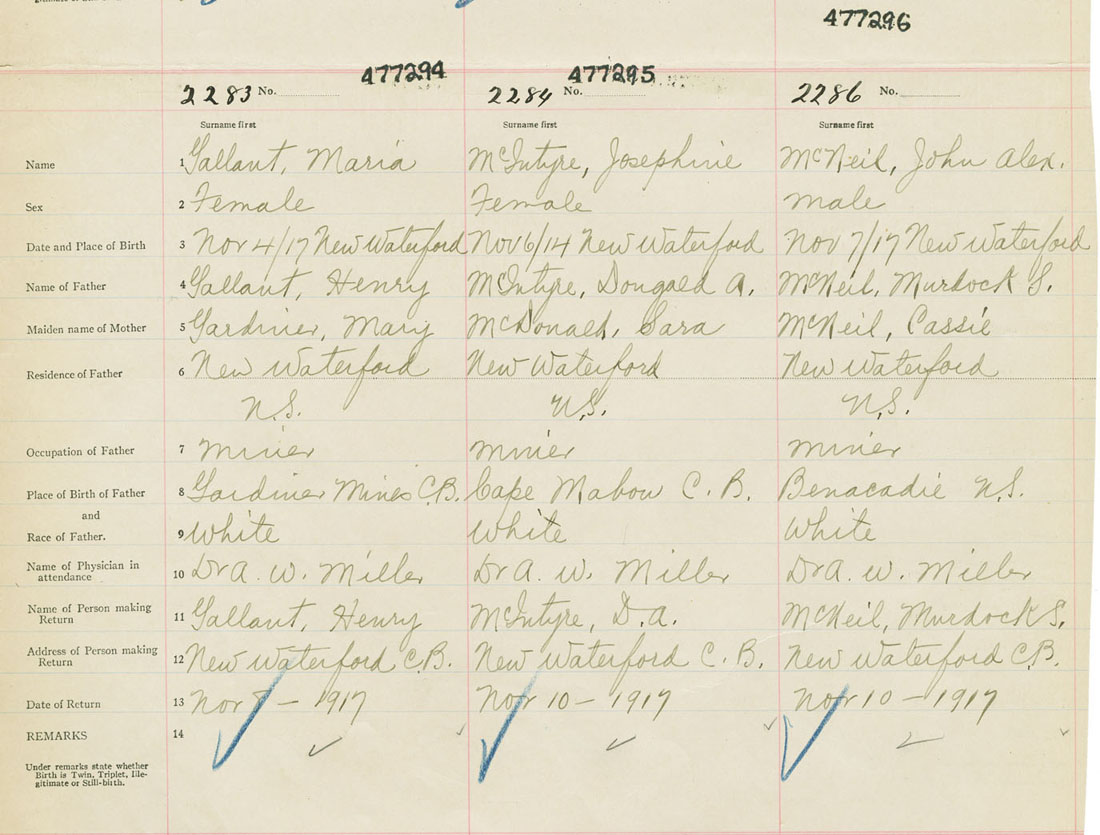 477296
477294 477295
2283 No. 2284 No. 2286 No.
Surname first Surname first Surname first
Name 1 Gallant, Maria McIntyre, Josephine McNeil, John Alex.
Sex 2 Female Female Male
Date and Place of Birth 3 Nov 4/17 New Waterford Nov 6/14 New Waterford Nov 7/17 New Waterford
Name of Father 4 Gallant, Henry McIntyre, Dougald A. McNeil, Murdock S.
Maiden name of Mother 5 Gardiner, Mary McDonald, Sara McNeil, Cassie
Residence of Father 6 New Waterford New Waterford New Waterford
N.S. N.S. N.S.
Occupation of Father 7 Miner Miner Miner
Place of Birth of Father 8 Gardiner Mines C.B. Cape Mabou C.B. Benacadie N.S.
and
Race of Father. 9 White White White
Name of Physician in
attendance 10 Dr A. W. Miller Dr A. W. Miller Dr A. W. Miller
Name of Person making
Return 11 Gallant, Henry McIntyre, D.A. McNeil, Murdock S.
Address of Person making
Return 12 New Waterford C.B. New Waterford C.B. New Waterford C.B.
Date of Return 13 Nov 8 - 1917 Nov 10 - 1917 Nov 10 - 1917
REMARKS 14
Under remarks state whether
Birth is Twin, Triplet, Ille-
gitimate or Still-birth.